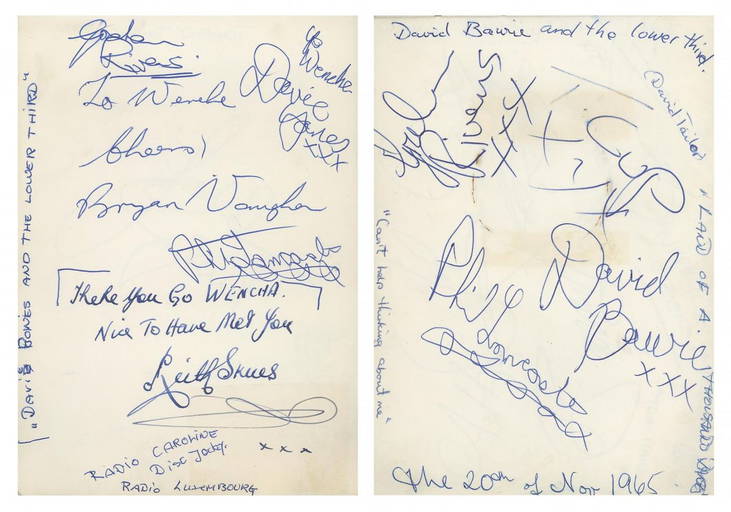 Graham
Rivens
To Wencha
Cheers!
Bryan Vaughan
to
Wencha
Davie
Jones
xxx
Phil Lancaster
There You Go WENCHA.
Nice To Have Met You
Keith Skues
RADIO CAROLINE
Disc Jockey.
xxx
RADIO LUXEMBOURG
"DAVIE BOWES AND THE LOWER THIRD"
David Bowie and the lower third.
Graham
Rivens
xxx
Cup
David Tailor
"LAND OF A THOUSAND DANCES
"Can't help thinking about me"
Phil
Lancaster
David
Bowie
xxx
The 20th of Nov 1965